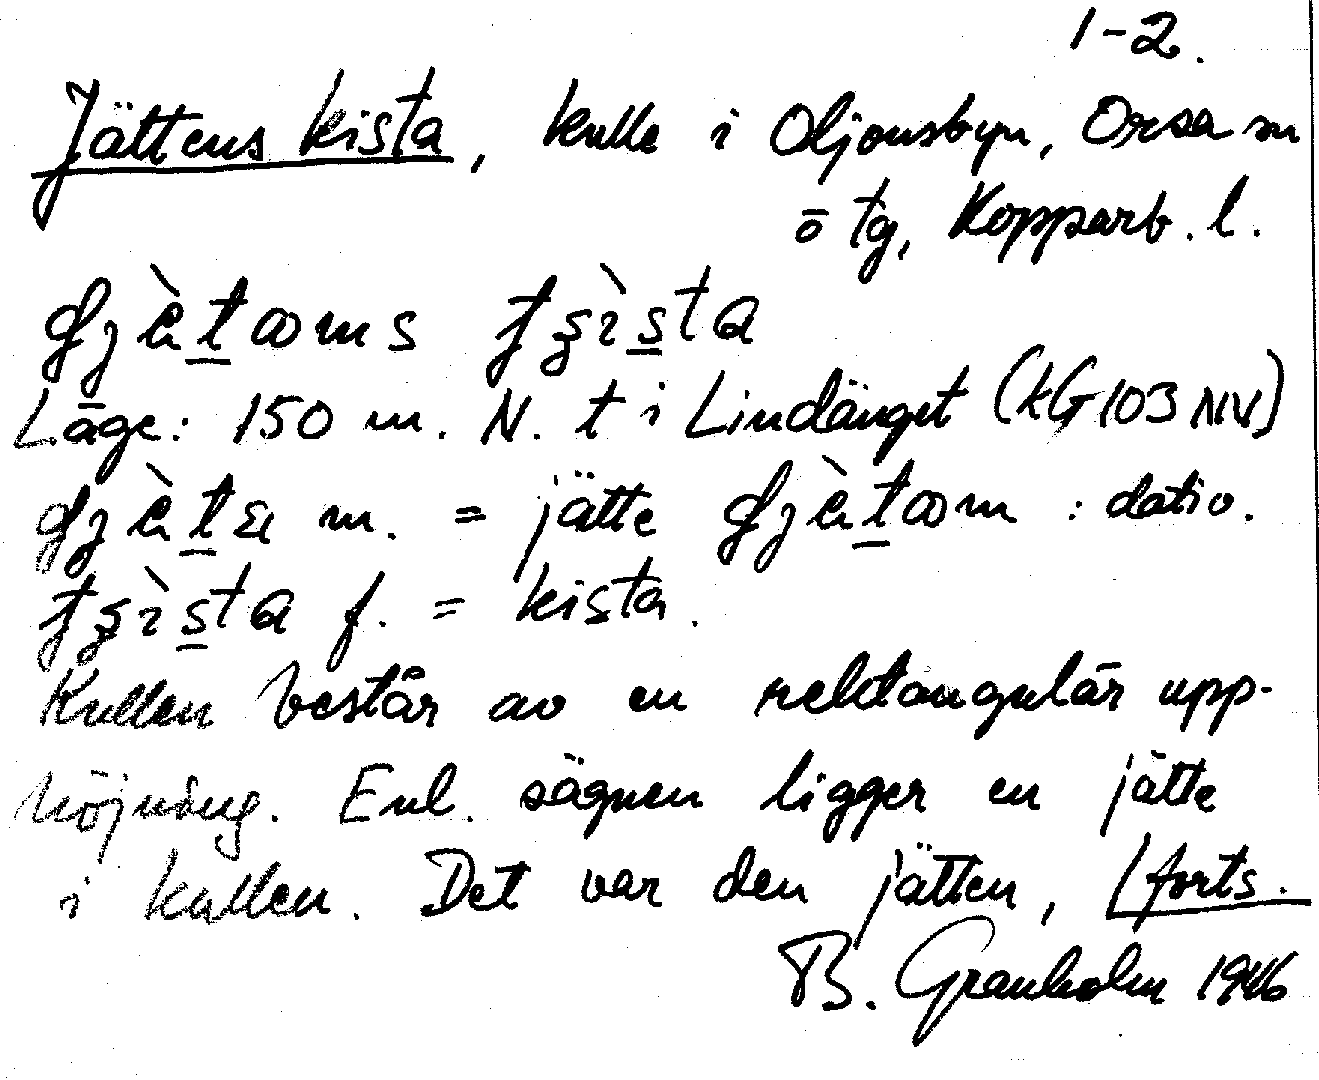 1-2.
Jättens kista, kulle i Oljonsbyn, Orsa sn
ö tg, Kopparb. l.
Läge: 150 m. N. t i Lindänget (kG 103 NV)
m. = jätte : dativ.
f. = kista.
Kullen består av en rektangulär upp-
höjning. Enl. sägnen ligger en jätte
i kullen. Det var den jätten, /forts.
B. Granholm 1946